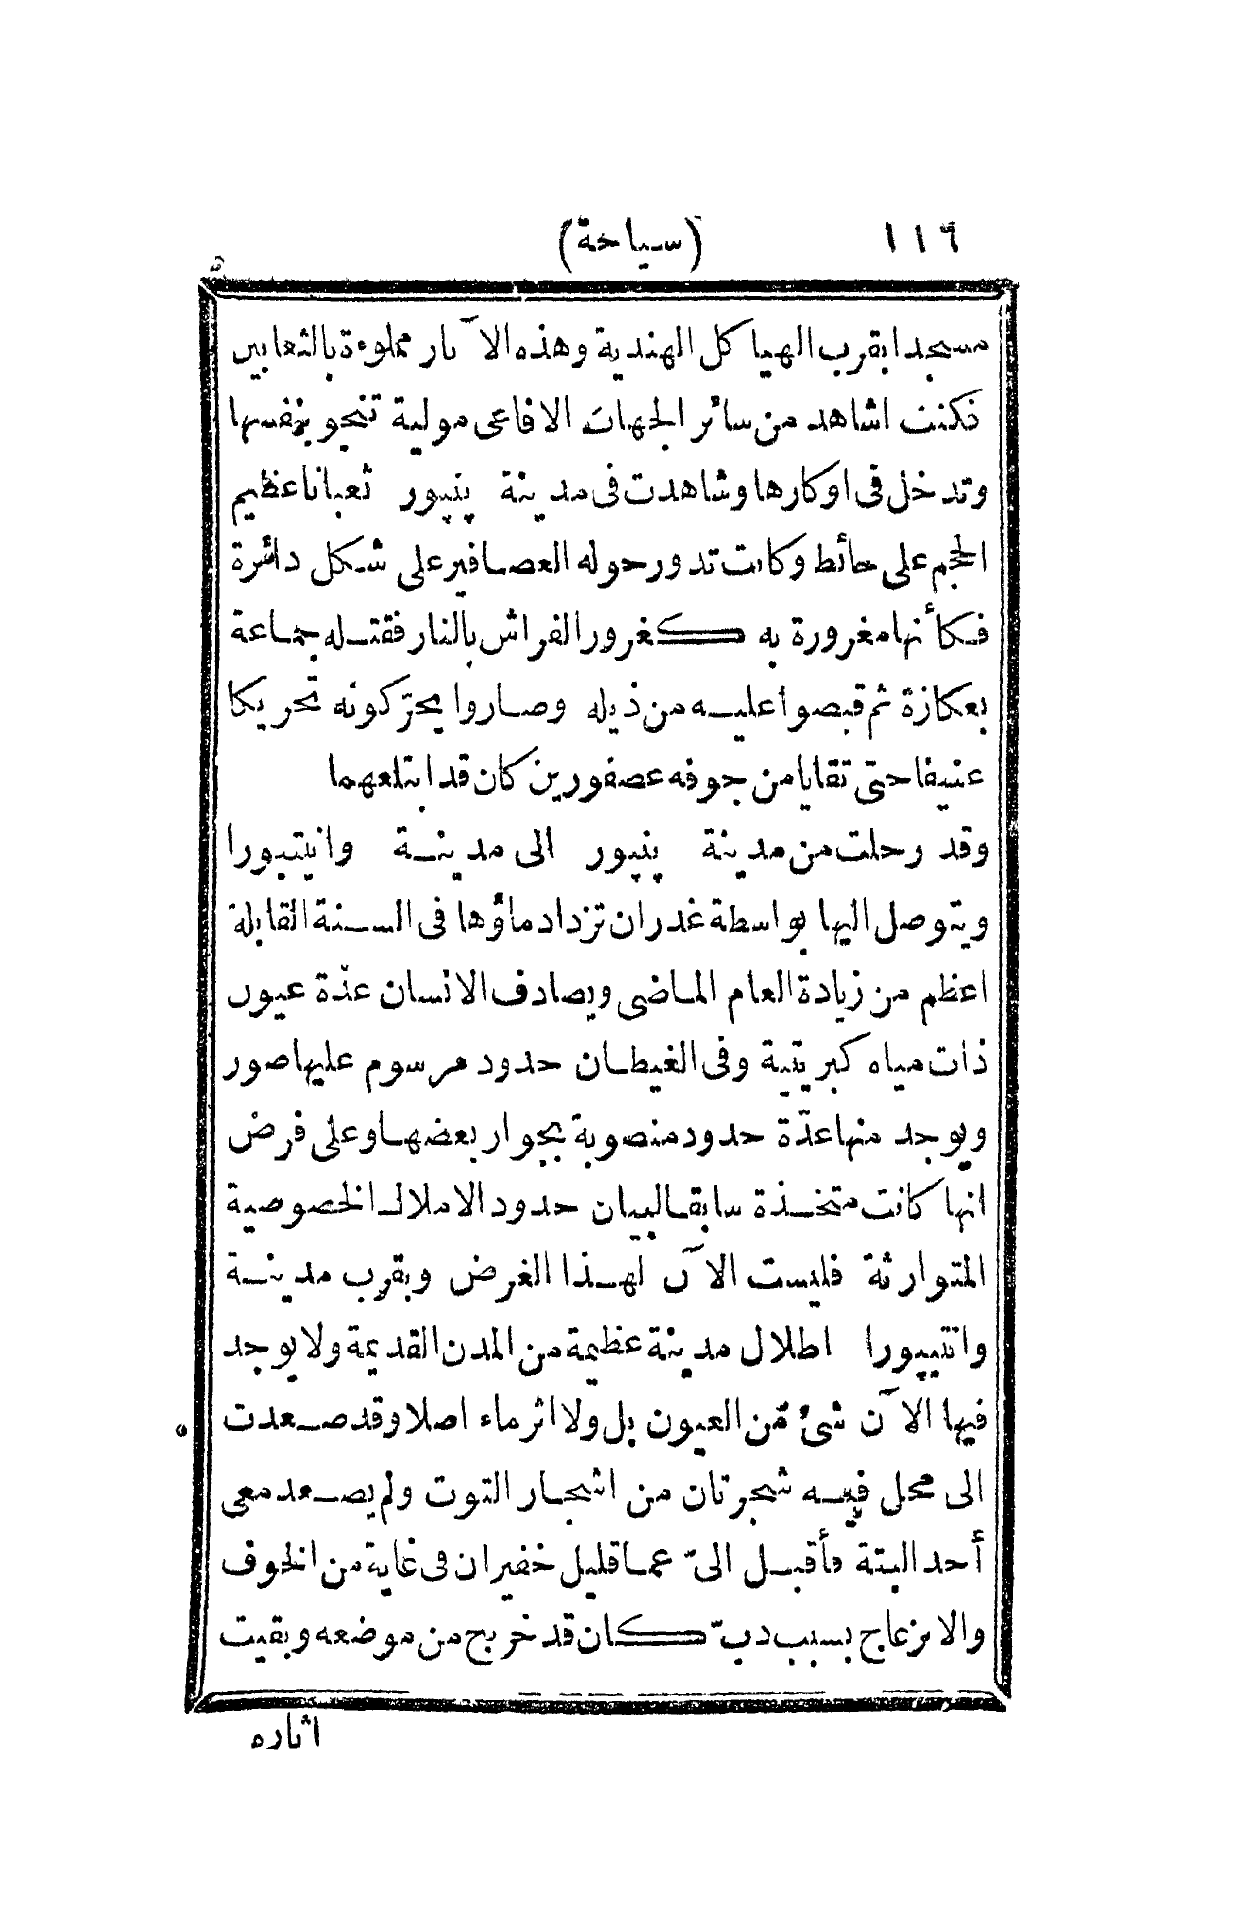 ١١٦ (سياحة)
مسجدا بقرب الهياكل الهندية وهذه الآبار مملوءة بالثعابين
فكنت اشاهد من سائر الجهات الافاعى مولية تنجو بنفسها
وتدخل فى اوكارها وشاهدت فى مدينة پنپور ثعبانا عظيم
الحجم على حائط وكانت تدور حوله العصافير على شكل دائرة
فكأنها مغرورة به كغرور الفراش بالنار فقتله جماعة
بعكازة ثم قبضوا عليه من ذيله وصاروا يحرّكونه تحريكا
عنيفا حتى تقايا من جوفه عصفورين كان قد ابتلعهما
وقد رحلت من مدينة پنپور الى مدينة وانتيپورا
ويتوصل اليها بواسطة غدران تزداد ماؤها فى السنة القابلة
اعظم من زيادة العام الماضى ويصادف الانسان عدّة عيون
ذات مياه كبريتية وفى الغيطان حدود مرسوم عليها صور
ويوجد منها عدّة حدود منصوبة بجوار بعضها وعلى فرض
انها كانت متخذة سابقا لبيان حدود الاملاك الخصوصية
المتوارثة فليست الآن لهذا الغرض وبقرب مدينة
وانتيپورا اطلال مدينة عظيمة من المدن القديمة ولا يوجد
فيها الآن شئ من العيون بل ولا اثر ماء اصلا وقد صعدت
الى محل فيه شجرتان من اشجار التوت ولم يصعد معى
أحد البتة فأقبل الىّ عما قليل خفيران فى غاية من الخوف
والانزعاج بسبب دبّ كان قد خرج من موضعه وبقيت
اثاره